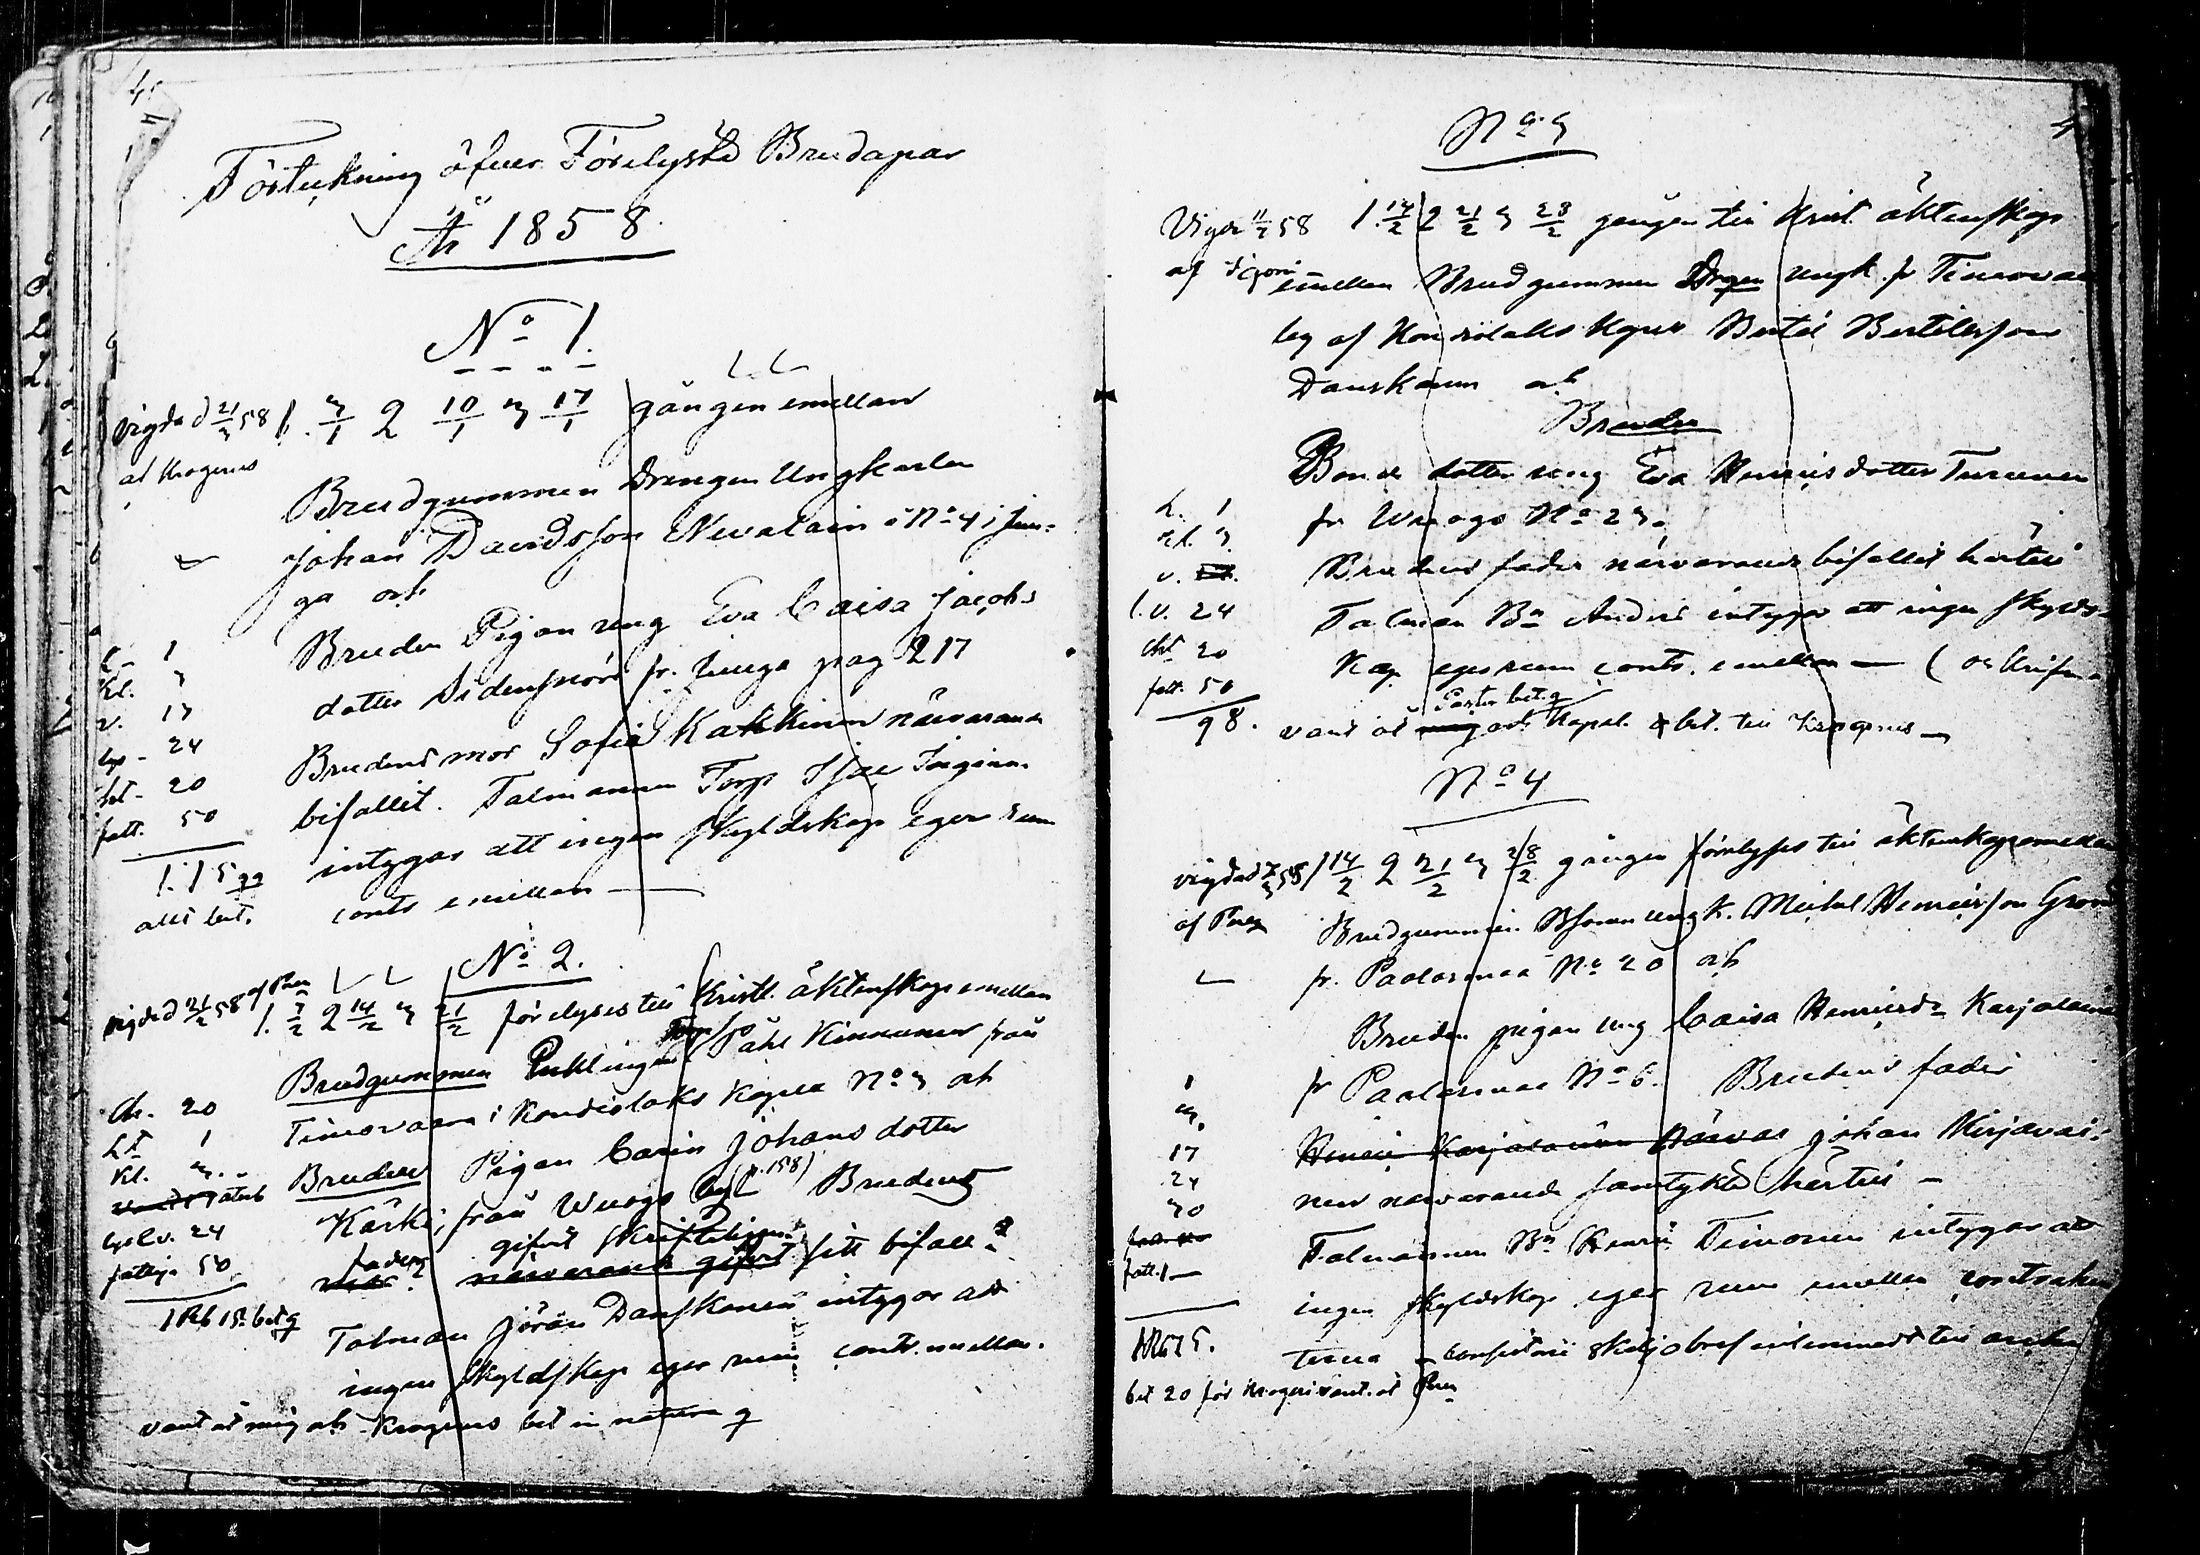 Förteckning öfver Förelysta Brudapar
År 1858.
No 1.
vigda d 21/3 58 1. 3/1 2 10/1 3 17/1 gången emellan
at Krogerus
Brudgummen Drengen Ungkarlen
Johan Davidsson Nevalain o No 4 i Jun-
ga och
Bruden Pigan ung Eva Caisa Jacobs
dotter Sidensnöre fr. Junga pag 217
Brudens mor Sofia Kakkinen närvarande
bifallit. Talmannen Torp Isac
intygar att ingen skyldskap eger rum
contr emellan —
1
Kl. 3
v. 17
24
20
fatt. 50
1.15
allt bet.
No 2.
vigda d 21/2 58 af
1. 7/2 2 14/2 3 21/2 förelyses till Kristl. äktenskap emellan
Brudgummen Enklingen Påhl Kinnunen från
Timovaara i Kondiolaks Kapell No 3 och
Bruden Pigan Carin Johans dotter
Kärki från Wuogo by (p. 158) Brudens
fader gifvit skriftligen
närvarande gifvit sitt bifall
Talman Jöran Danskanen intygar att
ingen skyldskap eger rum contr. emellan.
vant åt mig och Krogerus bet in natura
Ch. 20
1
Kl. 3
24
fattig. 50
1 Rb 15 bet
No 3
Vigda 11/3 58 1. 14/2 2 21/2 3 28/2 gången till Krist. äktenskap
af
emellan Brudgummen Drgen ungk. fr Timovaa
by af Kondiolaks Kapell Bertil Bertilsson
Danskanen och
Bruden
Bonde dotter ung Eva Henricsdotter Turunen
fr Wuogo No 23.
Brudens fader närvarande bifallit härtill
Talman Bn Anders intygar att ingen skylds-
kap eger rum contr. emellan — (
vant åt mig och Kapel. bet. till Krogerus —
1
Kl. 3
v.
l.v. 24
20
fatt. 50
98.
No 4
vigda d 7/3 58 1 14/2 2 21/2 3 28/2 gången förelyses till äktenskap emellan
af
Brudgummen Bsonen ungk. Michel Henricsson
fr. Paalasmaa No 20 och
Bruden pigan ung Caisa Henricsdr Karjalainen
fr Paalasmaa No 6. Brudens fader
Henric Karjalainen Närvar Johan Kirjavai-
nen närvarande samtyckte härtill —
Talmannen Bn Henric Timonen intygar att
ingen skyldskap eger rum emellan contrahen
terna —
1
3.
17
24
30
fatt. 1 —
bet 20 för Krogeri vant. åt